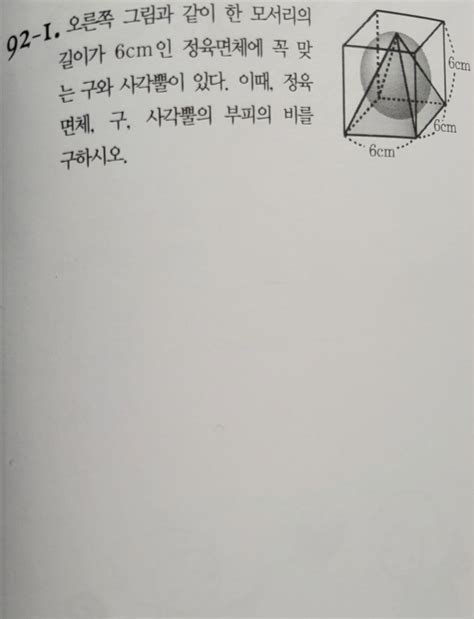 92-1. 오른쪽 그림과 같이 한 모서리의
길이가 6cm인 정육면체에 꼭 맞
는 구와 사각뿔이 있다. 이때, 정육
면체, 구, 사각뿔의 부피의 비를
구하시오.
6cm
6cm
6cm